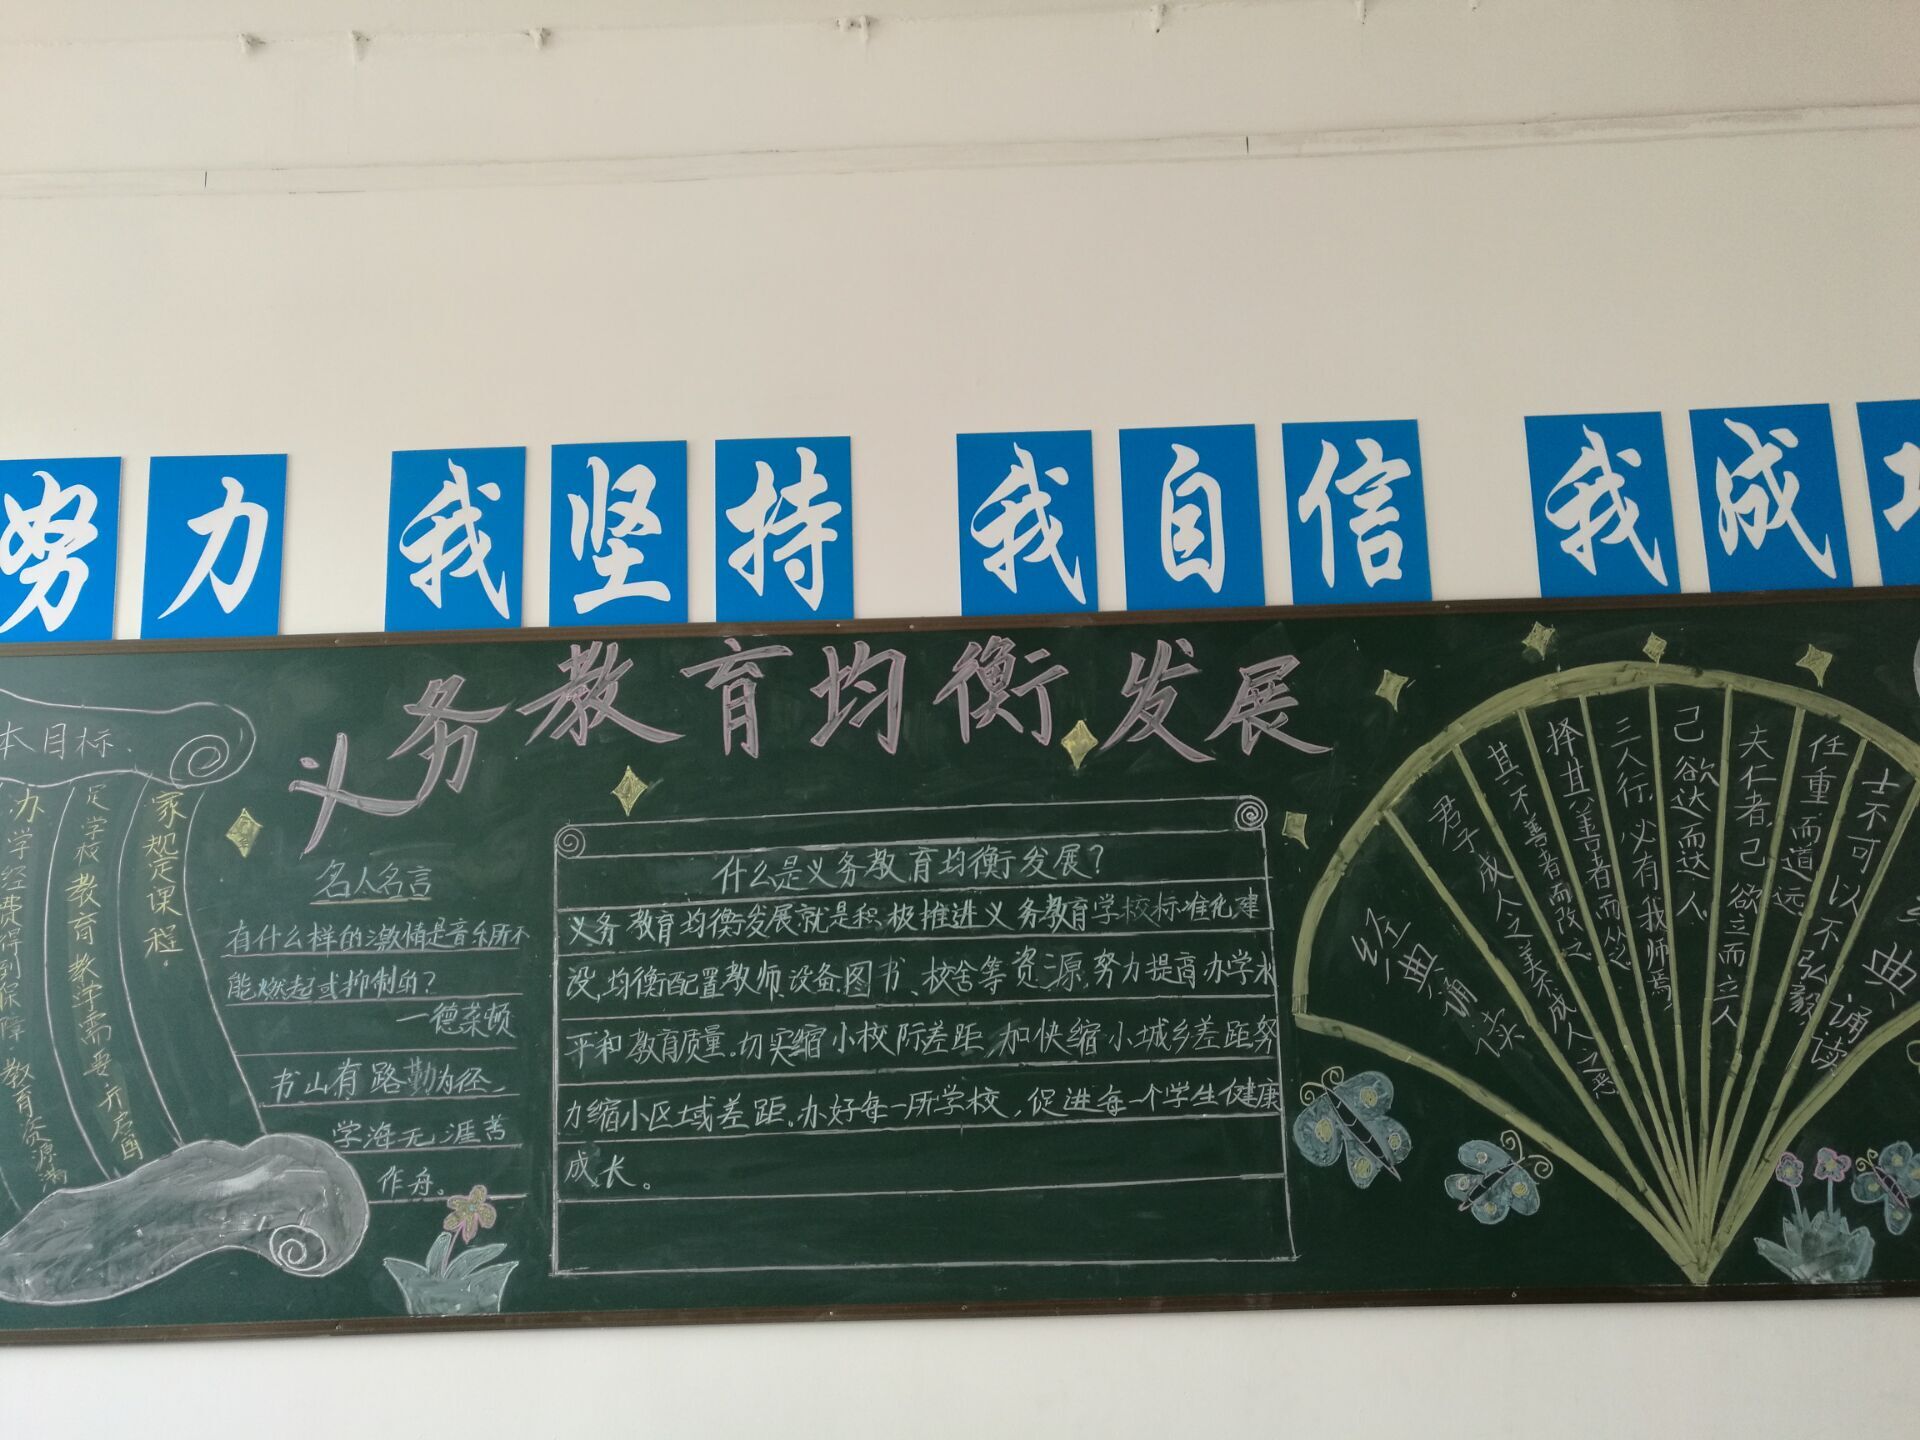 努力 我坚持 我自信 我成
义务教育均衡发展
本目标.
家规定课程.
足学校教育教学需要
办学经费得到保障 教育资源满
名人名言
有什么样的激情是音乐所不
能燃起或抑制的?
—德莱顿
书山有路勤为径,
学海无涯苦
作舟。
什么是义务教育均衡发展?
义务教育均衡发展就是积极推进义务教育学校标准化建
设,均衡配置教师、设备、图书、校舍等资源,努力提高办学水
平和教育质量.切实缩小校际差距,加快缩小城乡差距努
力缩小区域差距.办好每一所学校,促进每一个学生健康
成长。
经典诵读
君子成人之美不成人之恶
其不善者而改之
择其善者而从之
三人行,必有我师焉
己欲达而达人
夫仁者,己欲立而立人
任重而道远
士不可以不弘毅
典诵读